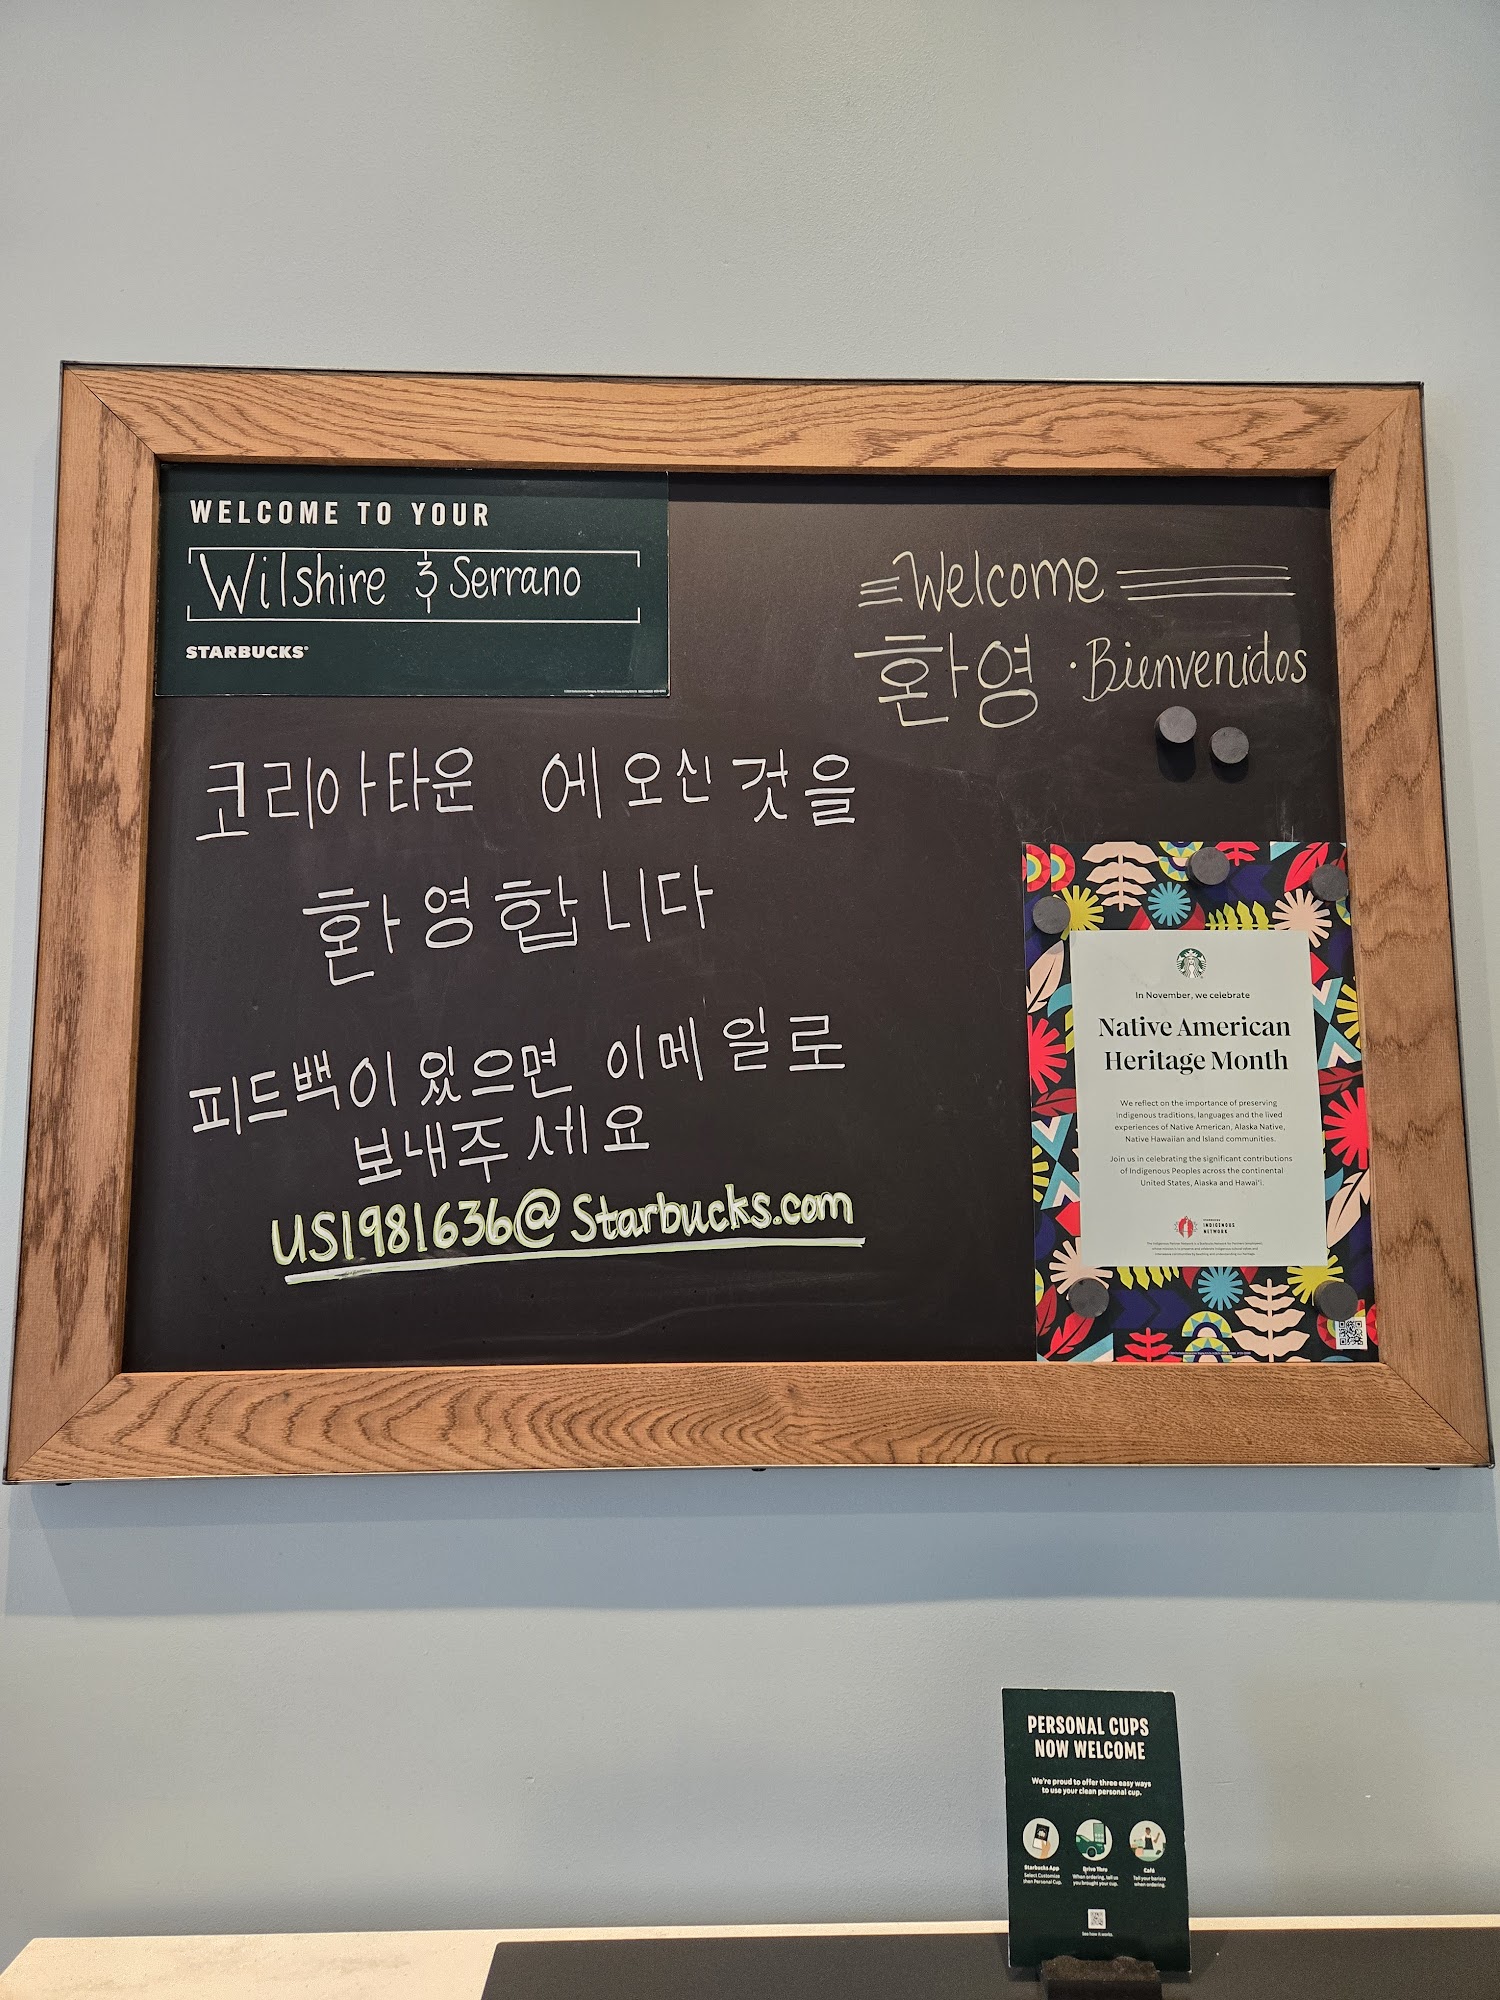 WELCOME TO YOUR
Wilshire & Serrano
STARBUCKS®
Welcome
환영 · Bienvenidos
코리아타운 에 오신 것을
환영합니다
피드백이 있으면 이메일로
보내주세요
US1981636@Starbucks.com
In November, we celebrate
Native American
Heritage Month
We reflect on the importance of preserving
Indigenous traditions, languages and the lived
experiences of Native American, Alaska Native,
Native Hawaiian and Island communities.
Join us in celebrating the significant contributions
of Indigenous Peoples across the continental
United States, Alaska and Hawai‘i.
INDIGENOUS
NETWORK
PERSONAL CUPS
NOW WELCOME
We're proud to offer three easy ways
to use your clean personal cup.
Starbucks App
Select Customize
then Personal Cup.
Drive Thru
When ordering, tell us
you brought your cup.
Café
Tell your barista
when ordering.
See how it works.